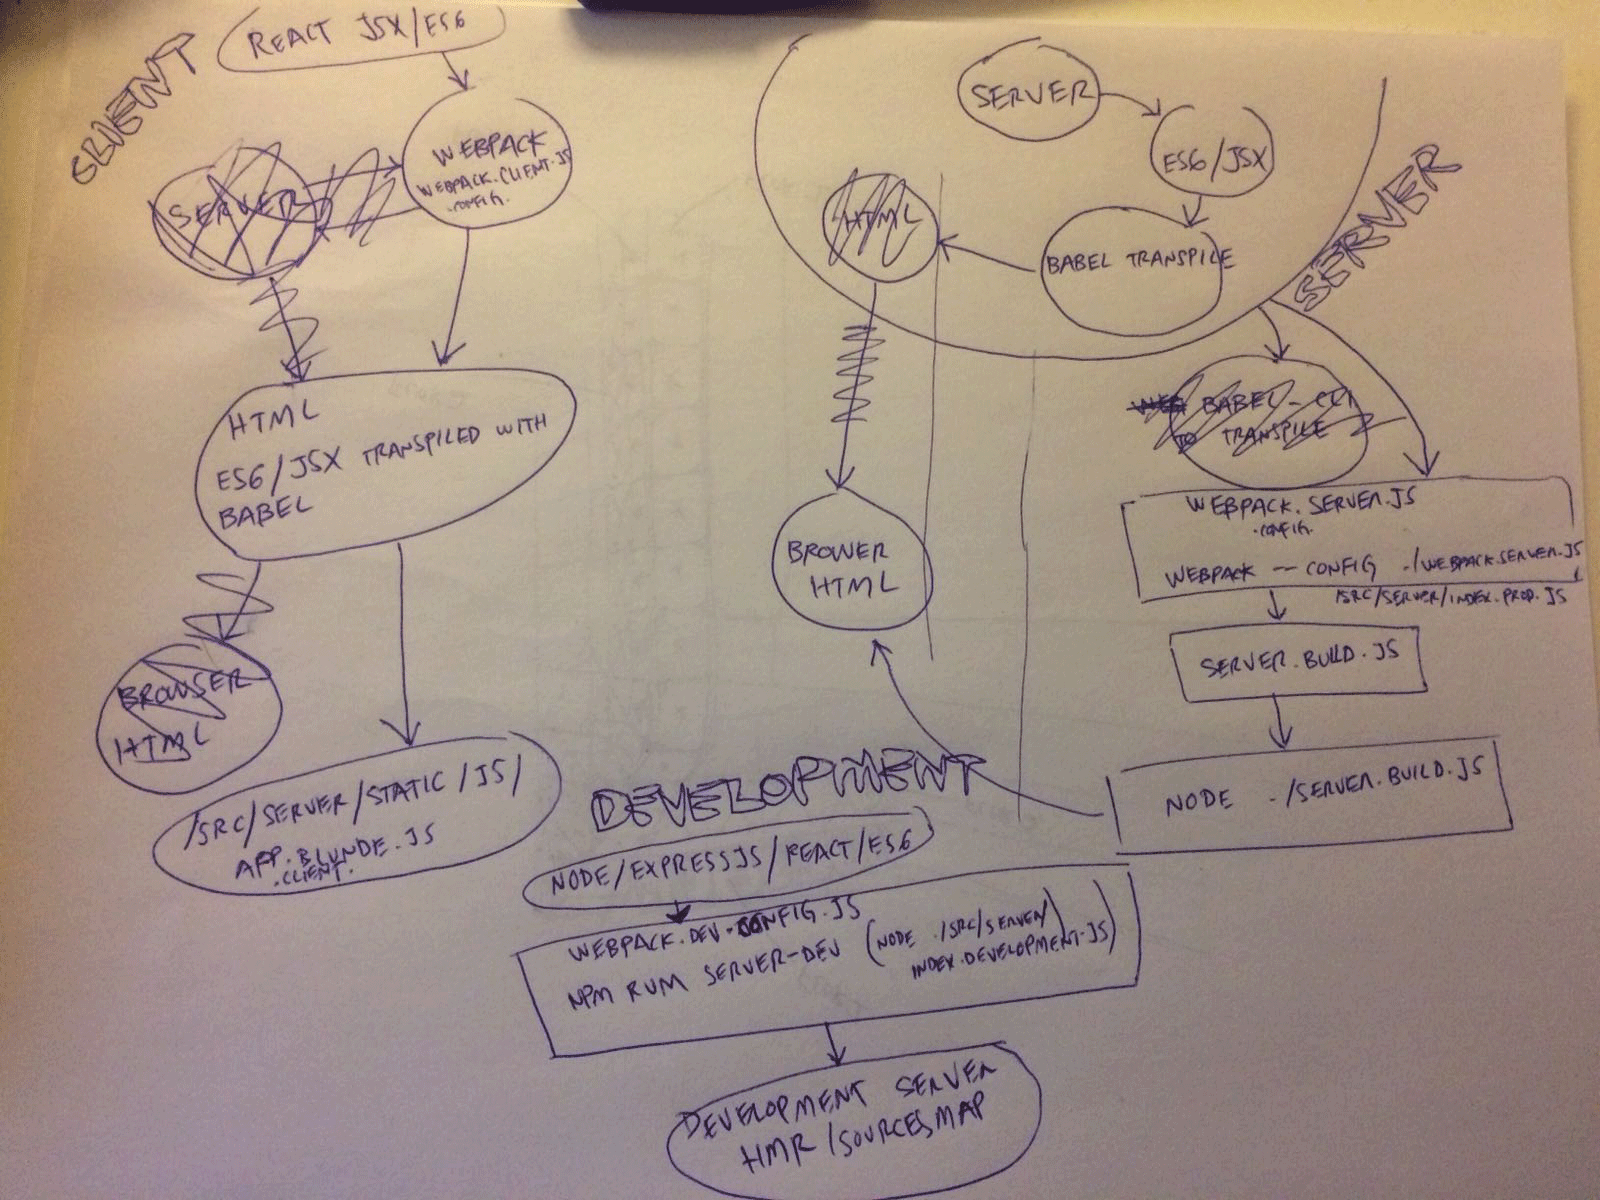 CLIENT
REACT JSX/ES6
WEBPACK
WEBPACK.CLIENT.JS
.CONFIG.
SERVER
HTML
ES6/JSX TRANSPILED WITH
BABEL
BROWSER
HTML
/SRC/SERVER/STATIC/JS/
APP.BLUNDE.JS
.CLIENT.
SERVER
SERVER
ES6/JSX
BABEL TRANSPILE
HTML
BROWER
HTML
WEB BABEL-CLI
TO TRANSPILE
WEBPACK.SERVER.JS
.CONFIG.
WEBPACK -- CONFIG ./WEBPACK.SERVER.JS
/SRC/SERVER/INDEX.PROD.JS
SERVER.BUILD.JS
NODE ./SERVER.BUILD.JS
DEVELOPMENT
NODE/EXPRESSJS/REACT/ES6
WEBPACK.DEV-CONFIG.JS
NPM RUM SERVER-DEV (NODE ./SRC/SERVER/
INDEX.DEVELOPMENT.JS)
DEVELOPMENT SERVER
HMR/SOURCESMAP